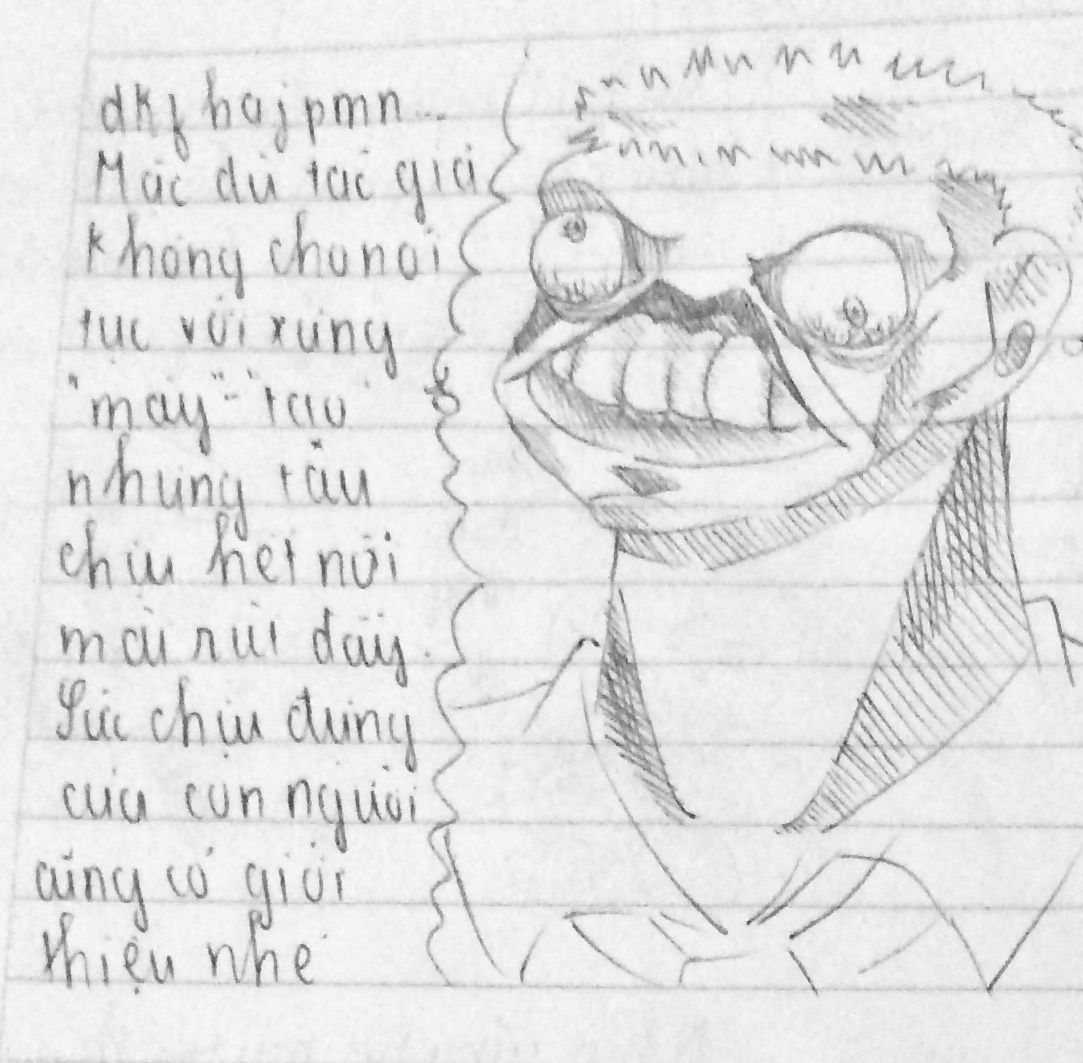 dkf hajpmn...
Mặc dù tác giả
không cho nói
tục với xưng
"mày" - "tao"
nhưng tău
chịu hết nổi
mài rùi đấy.
Sức chịu đựng
của con người
cũng có giới
thiệu nhé